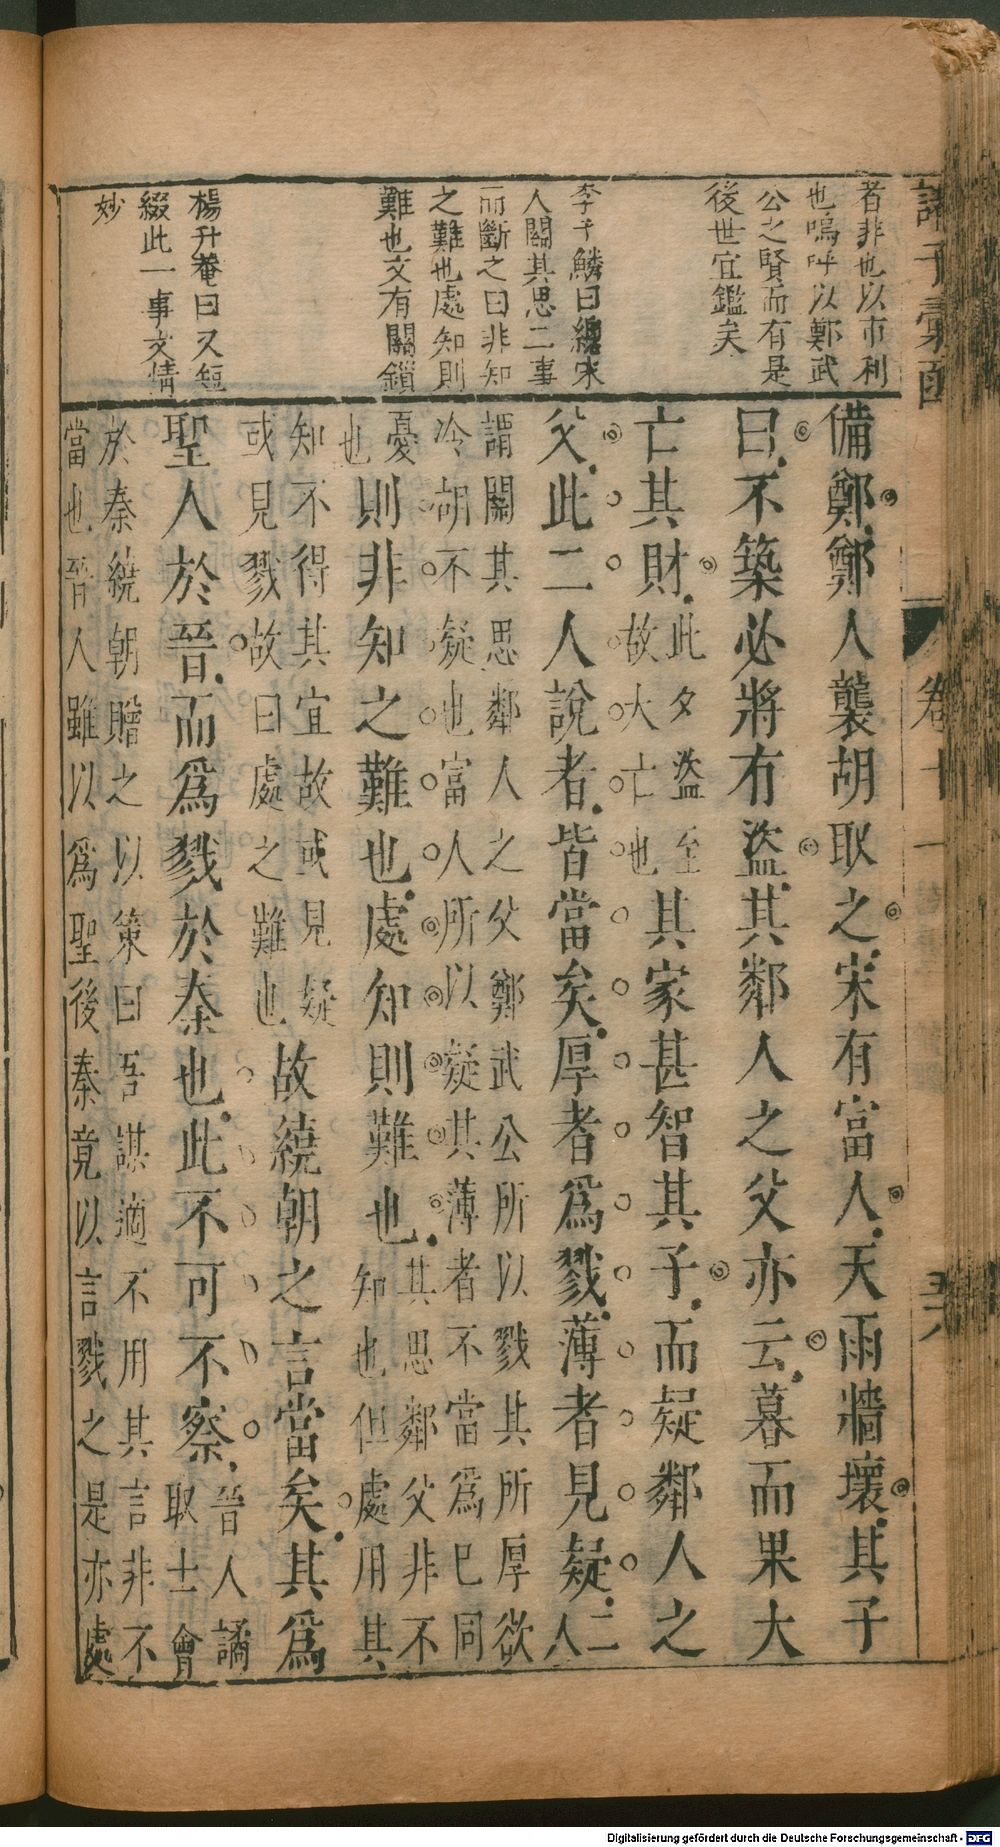 諸子彙函
卷十一
者非也以市利
也嗚呼以鄭武
公之賢而有是
後世宜鑑矣
李于鱗曰總宋
人關其思二事
而斷之曰非知
之難也處知則
難也文有關鎖
楊升菴曰又短
綴此一事文情
妙
備鄭鄭人襲胡取之宋有富人天雨牆壞其子
曰不築必將有盜其鄰人之父亦云暮而果大
亡其財此夕盜至故大亡也其家甚智其子而疑鄰人之
父此二人說者皆當矣厚者爲戮薄者見疑二人
謂關其思鄰人之父鄭武公所以戮其所厚欲
冷胡不疑也富人所以疑其薄者不當爲已同
憂也則非知之難也處知則難也其思鄰父非不知也但處用其
知不得其宜故或見疑或見戮故曰處之難也故繞朝之言當矣其爲
聖人於晉而爲戮於秦也此不可不察晉人譎取士會
於秦繞朝贈之以策曰吾謀適不用其言非不
當也晉人雖以爲聖後秦竟以言戮之是亦處
Digitalisierung gefördert durch die Deutsche Forschungsgemeinschaft - DFG